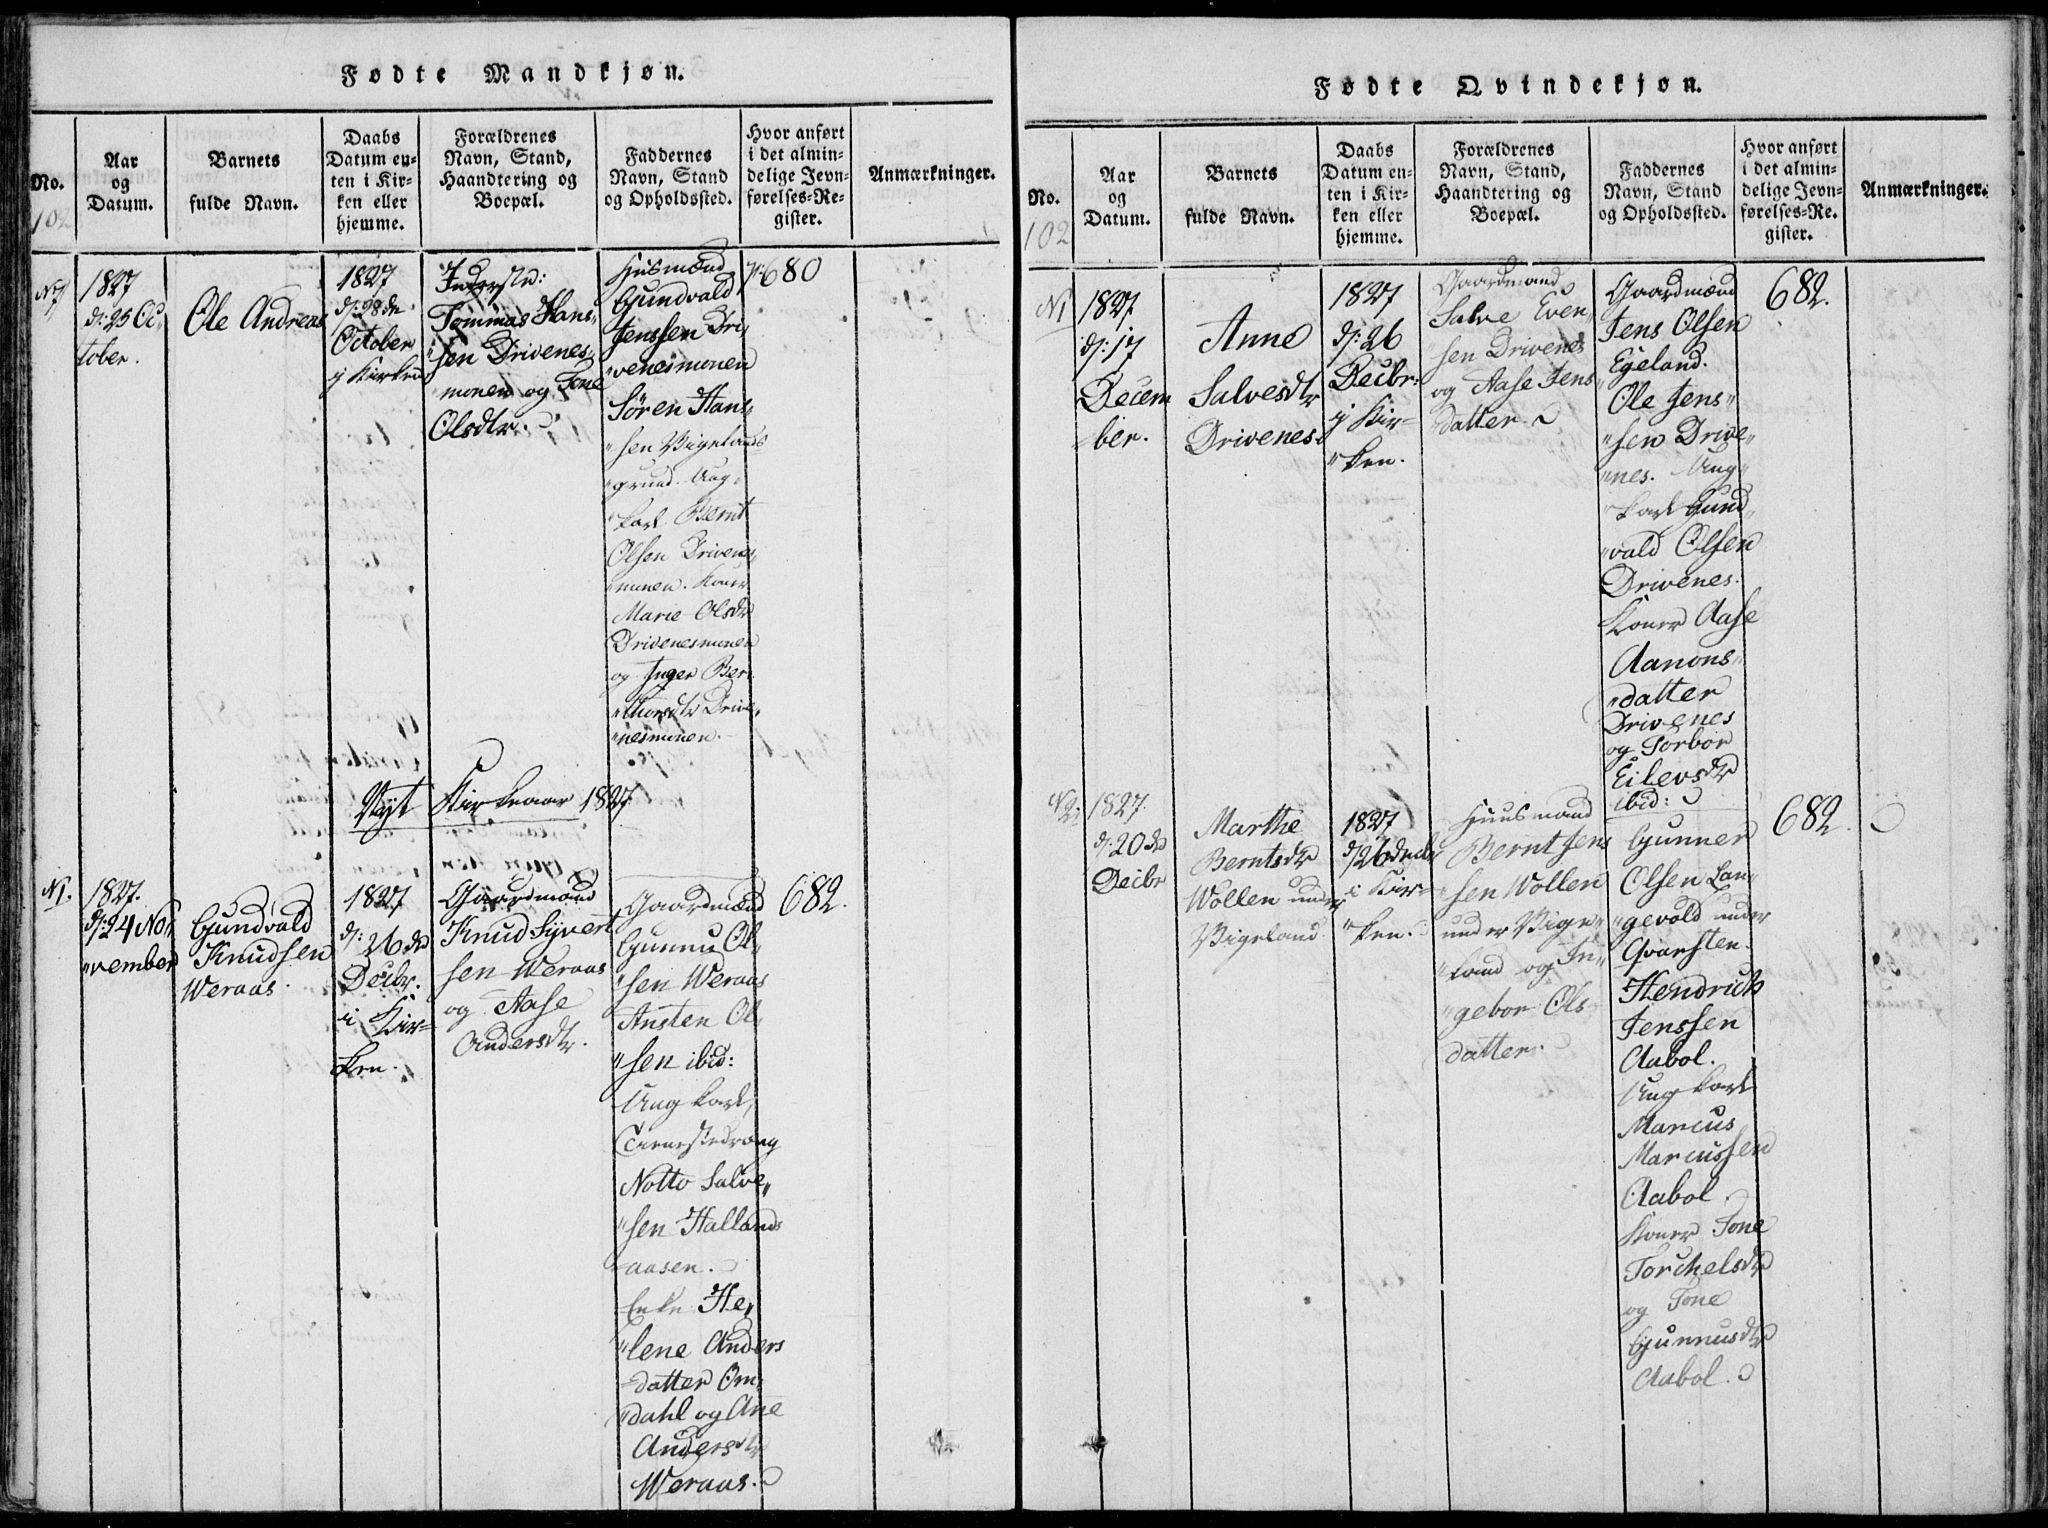 Fødte Mandkjøn.
No.
102
Aar
og
Datum.
Barnets
fulde Navn.
Daabs
Datum en-
ten i Kir-
ken eller
hjemme.
Forældrenes
Navn, Stand,
Haandtering og
Boepæl.
Faddernes
Navn, Stand
og Opholdssted.
Hvor anført
i det almin-
delige Jevn-
førelses-Re-
gister.
Anmærkninger.
N7
1827
d: 25 Oc-
tober.
Ole Andreas
1827
d: 28de
October
i Kirken
Inderst:
Tommas Hans,
"sen Drivenes,
"monen og Tone
Olsdtr.
Husmænd
Gundvald
Jenssen Dri,
"venesmonen
Sören Hans,
"sen Vigelands
"grund. Ung,
"karl Bernt
Olsen Drivenes,
"monen. Koner
Marie Olsdtr
Drivenesmonen
og Inger Ber,
"thorsdtr Drive,
"nesmonen.
680
Nyt Kirkeaar 1827
N1.
1827.
d: 24 No,
"vember
Gundvald
Knudsen
Weraas.
1827
d:
26de
Decbr.
i Kir-
ken.
Gaardmand
Knud Syvert
sen Weraas
og Aase
Andersdtr.
Gaardmænd
Gunnu Ol,
"sen Weraas
Ansten Ol,
"sen ibid:
Ung karl,
Tienestedreng
Notto Salve,
"sen Hallands
-aasen.
Enke He,
"lene Anders
-datter Om,
"dahl og Ane
Andersdtr
Weraas.
682.
Fødte Qvindekjøn.
No.
102
Aar
og
Datum.
Barnets
fulde Navn.
Daabs
Datum en-
ten i Kir-
ken eller
hjemme.
Forældrenes
Navn, Stand,
Haandtering og
Boepæl.
Faddernes
Navn, Stand
og Opholdssted.
Hvor anført
i det almin-
delige Jevn-
førelses-Re-
gister.
Anmærkninger.
N1
1827
d: 17
Decem
-ber.
Anne
Salvesdtr
Drivenes
1827
d: 26
Decbr:
i Kir-
"ken.
Gaardmand
Salve Even,
"sen Drivenes
og Aase Jens
"datter.
Gaardmænd
Jens Olsen
Egeland.
Ole Jens,
"sen Drive,
"nes. Ung,
"karl Gund,
"vald Olsen
Drivenes.
Koner Aase
Aanons,
"datter
Drivenes
og Torbor
Eilevsdtr
ibid:
682.
N2.
1827.
d: 20de
Decbr
Marthe
Berntsdtr
Wollen under
Vigeland
1827
d: 26de Decbr
i Kir-
"ken.
Huusmand
Bernt Jens
"sen Wollen
under Vige-
"land og In,
"gebor Ols-
datter.
Gunner
Olsen Lan,
"gevold under
Qvarsten.
Hendrick
Jenssen
Aabol.
Ung karl
Marcus
Marcussen
Aabol.
Koner Tone
Torchelsdtr
og Tone
Gunnusdtr
Aabol.
682.